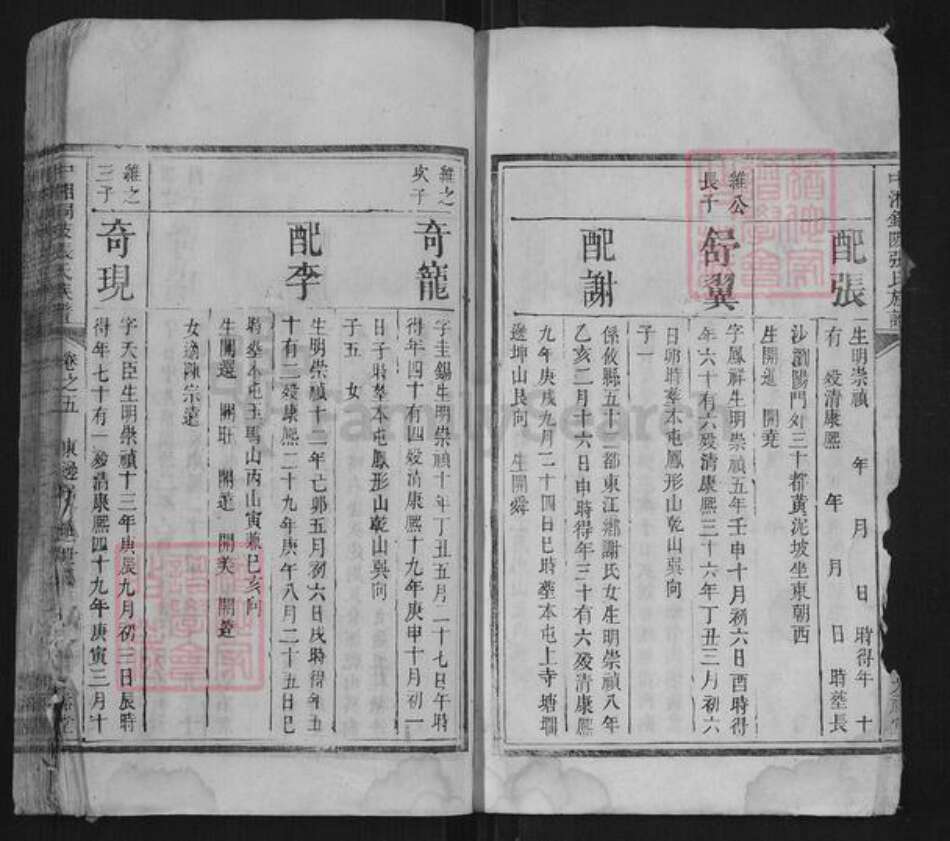 配張
生明崇禎 年 月 日 時得年 十
有 歿清康熙 年 月 日 時塟長
沙瀏陽門外三十都黃泥坡坐東朝西
生開運 開堯
維公
長子
舒翼
字鳳祥生明崇禎五年壬申十月初六日酉時得
年六十有六歿清康熙三十六年丁丑三月初六
日卯時塟本屯鳳形山乾山巽向
子一
配謝
係攸縣五十二都東江鄉謝氏女生明崇禎八年
乙亥二月十六日申時得年三十有六歿清康熙
九年庚戌九月二十四日巳時塟本屯上寺塘墈
邊坤山艮向 生開舜
維之
次子
奇龍
字圭錫生明崇禎十年丁丑五月二十七日午時
得年四十有四歿清康熙十九年庚申十月初一
日子時塟本屯鳳形山乾山巽向
子五 女
配李
生明崇禎十二年己卯五月初六日戌時得年五
十有二歿康熙二十九年庚午八月二十五日巳
時塟本屯玉馬山丙山寅兼巳亥向
生開選 開 開進 開美 開
女適陳宗遠
維之
三子
奇現
字天臣生明崇禎十三年庚辰九月初三日辰時
得年七十有一歿清康熙四十九年庚寅三月十
張氏族譜 卷之五
FamilySearch